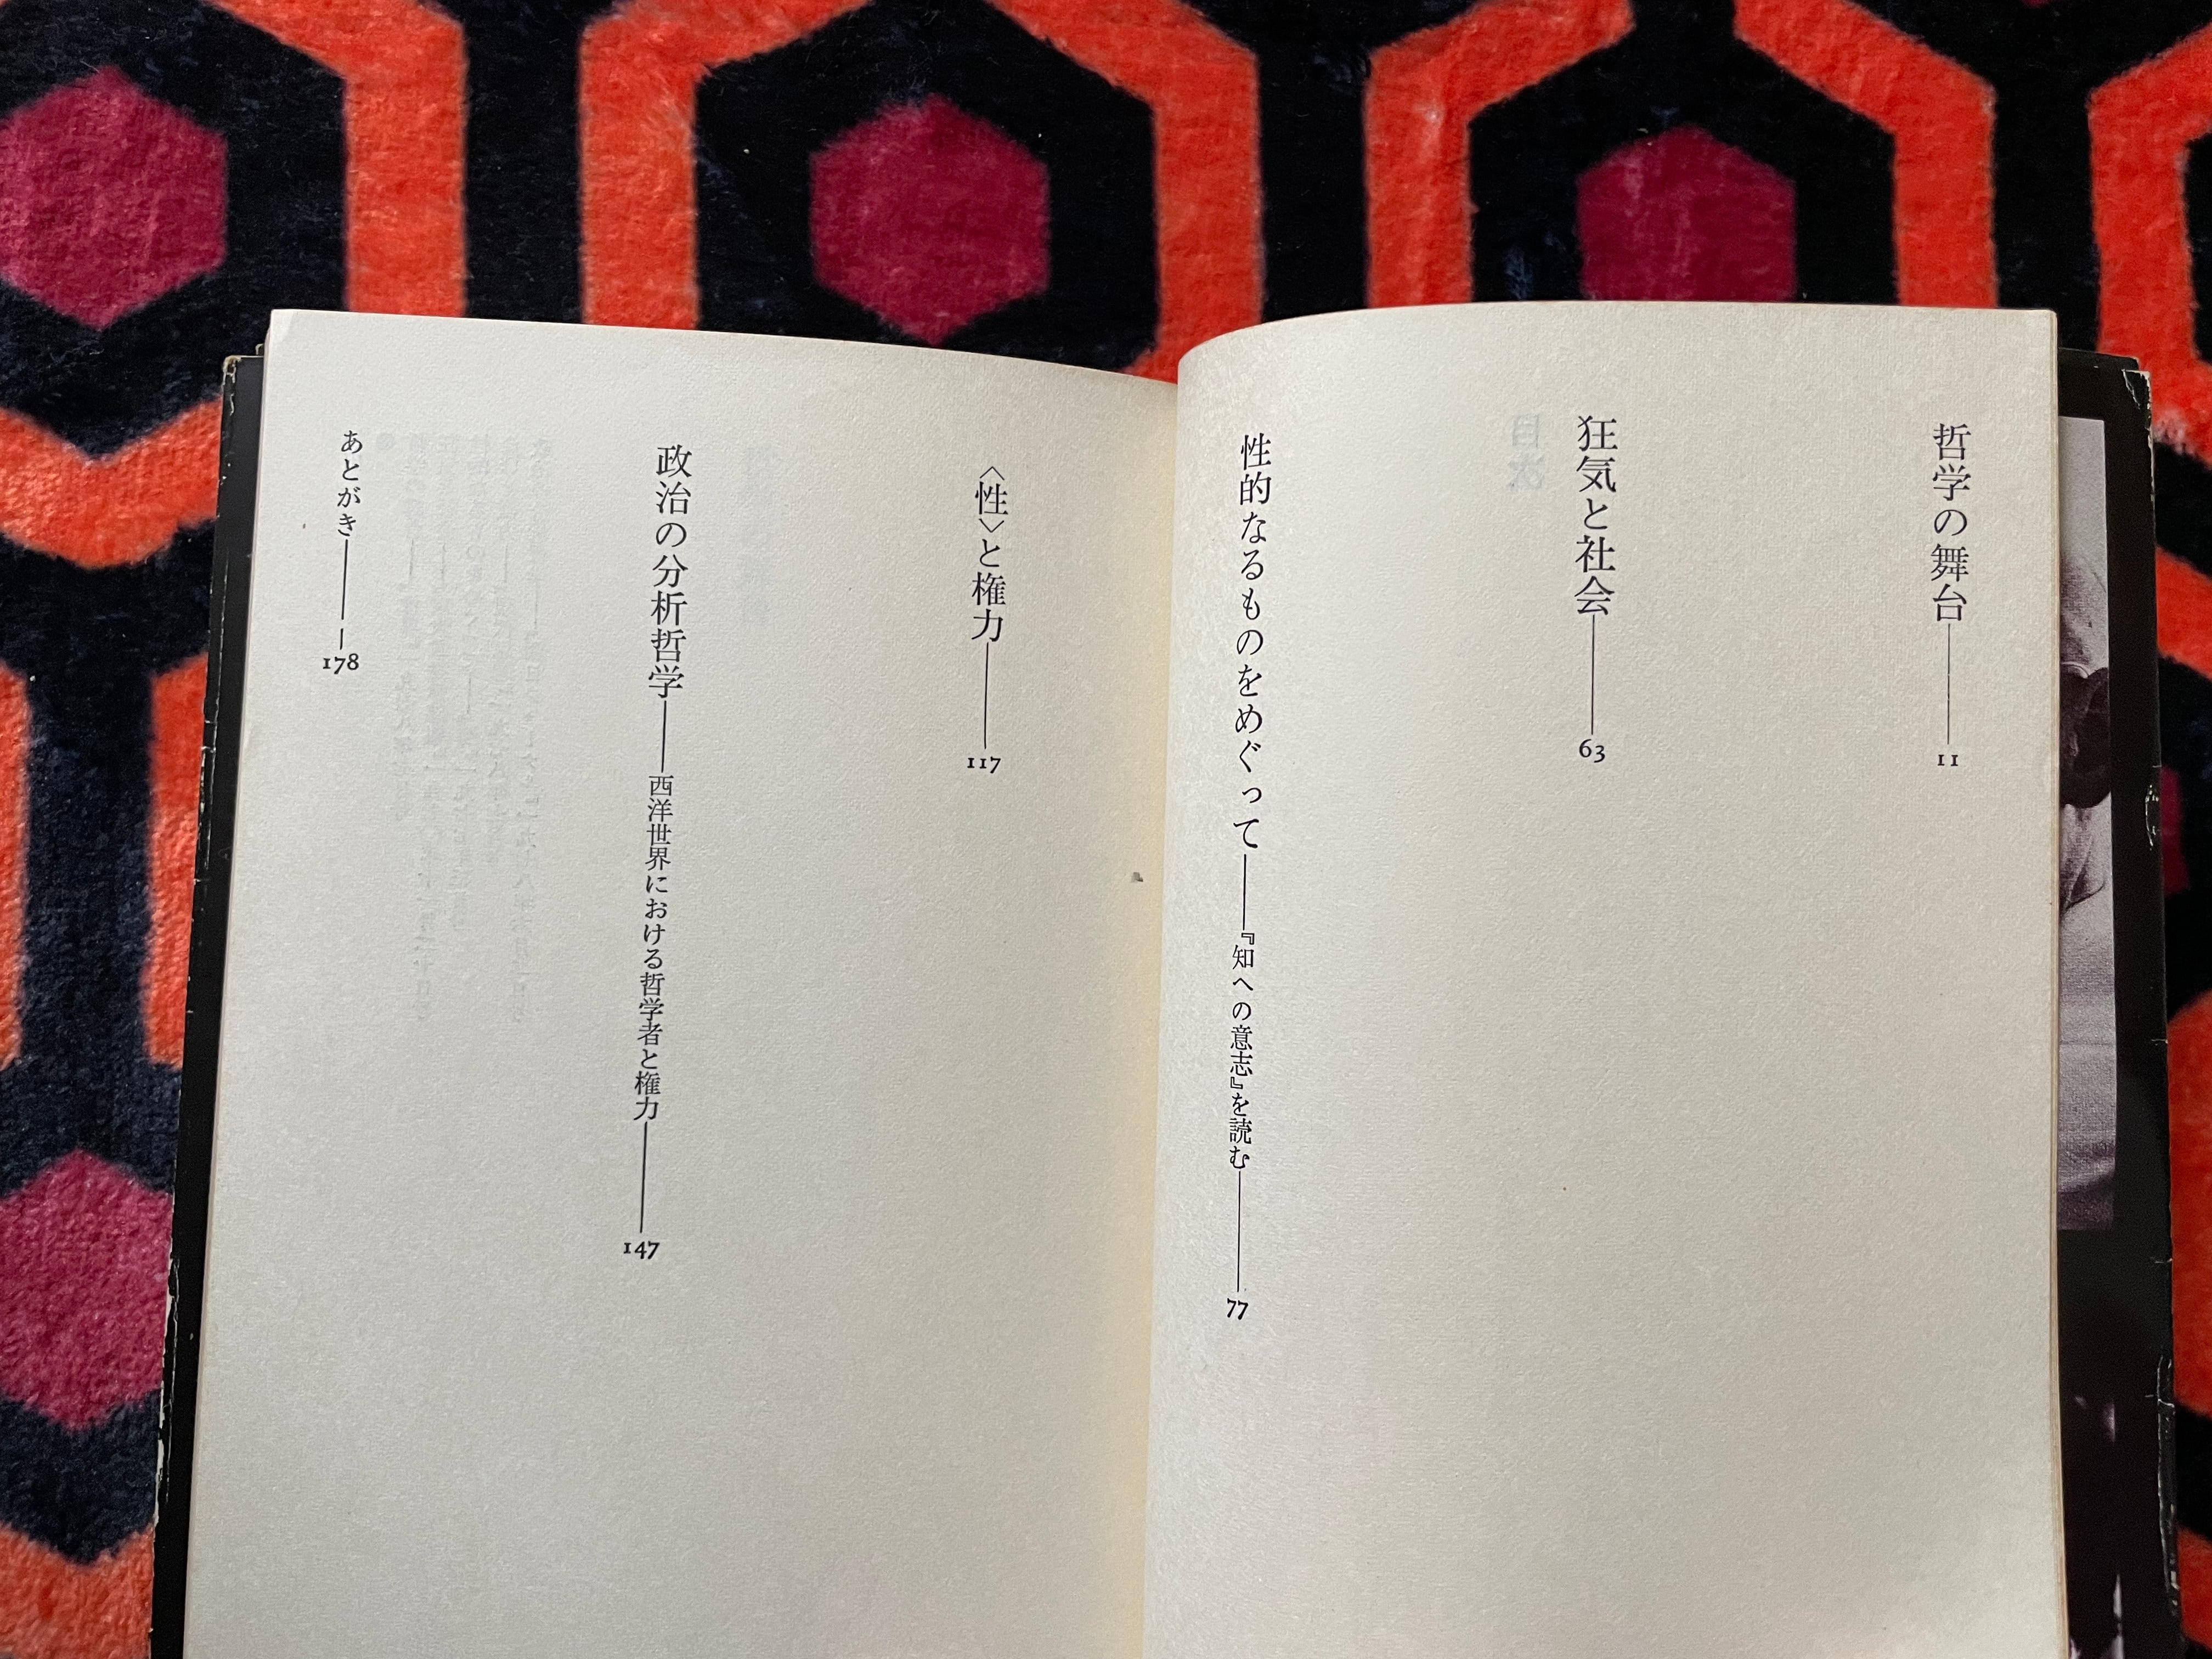 哲学の舞台――11
狂気と社会――63
性的なるものをめぐって――『知への意志』を読む――77
〈性〉と権力――117
政治の分析哲学――西洋世界における哲学者と権力――147
あとがき――178